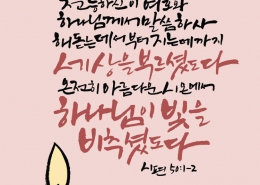 전능하신 이 여호와
하나님께서 말씀하사
해 돋는 데서부터 지는 데까지
세상을 부르셨도다
온전히 아름다운 시온에서
하나님이 빛을
비추셨도다
시편 50:1-2